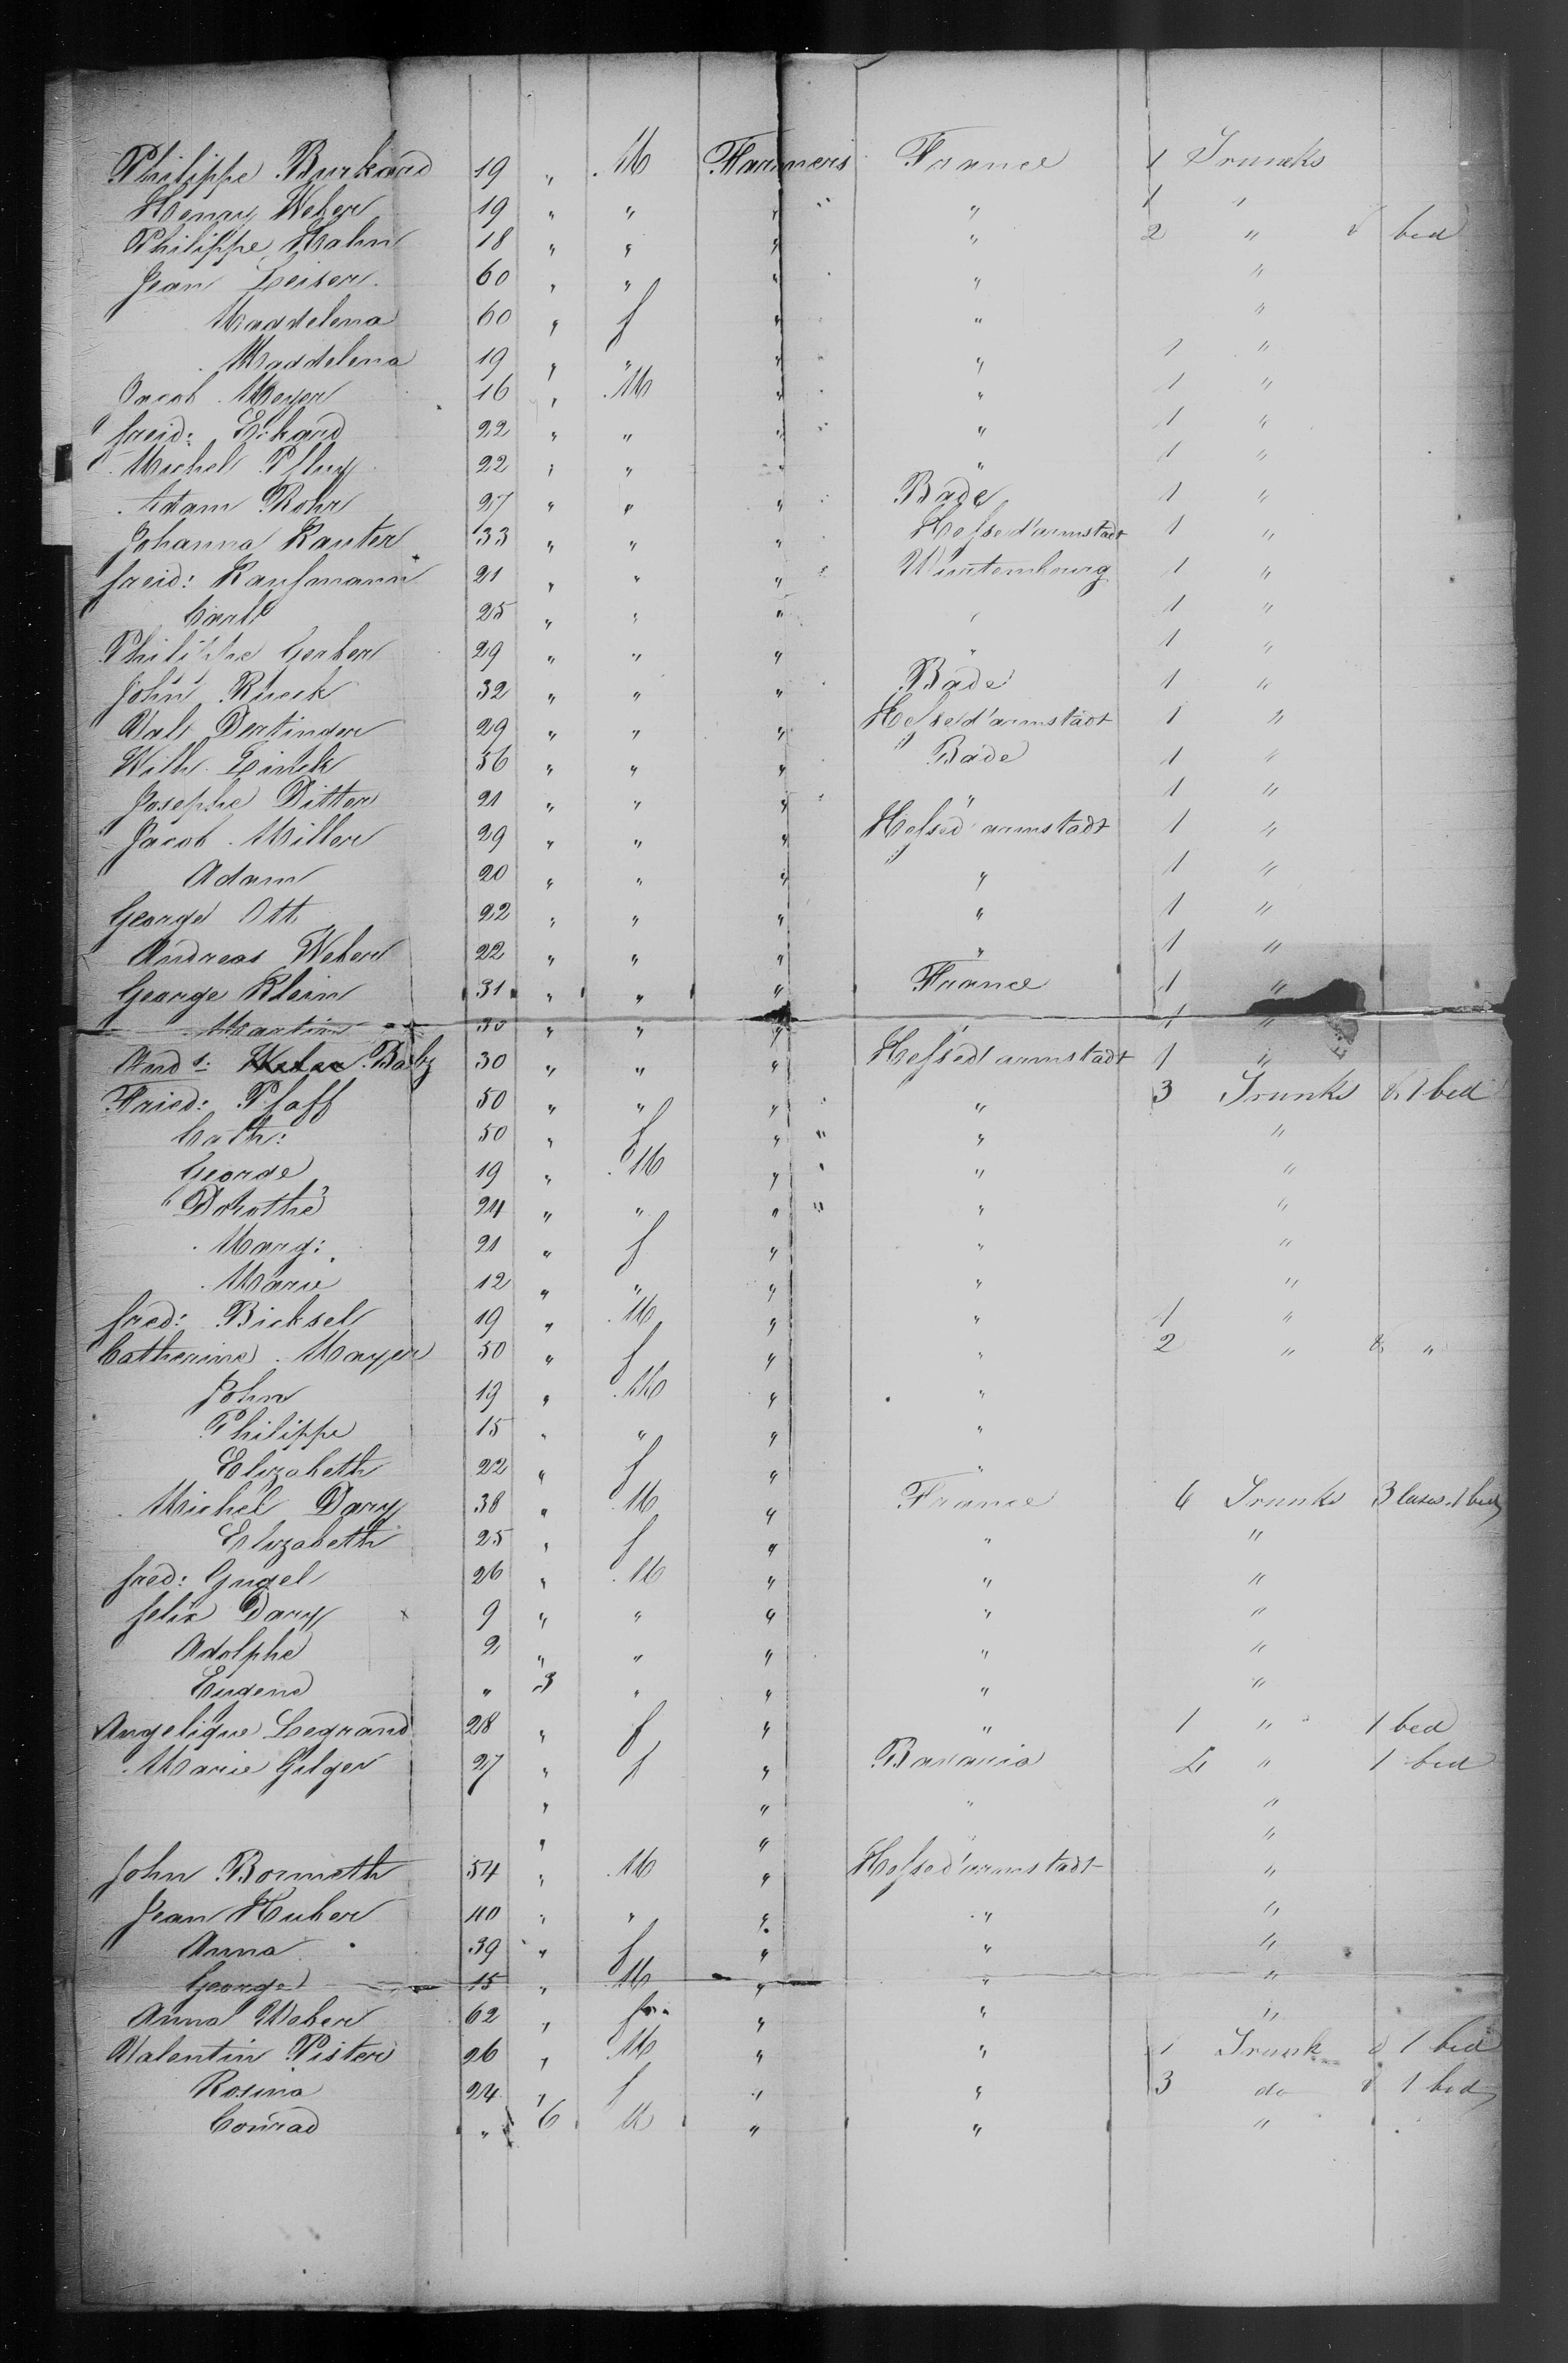 Philippe Burkard 19 " M Farmers France 1 Truncks
Henry Weber 19 " " " " 1 "
Philippe Hahn 18 " " " " 2 " & bed
Jean Leiser 60 " " " " "
Maddelena 60 " f " " "
Maddelena 19 " " " " 1 "
Jacob Meyer 16 " M " " 1 "
freid: Erhard 22 " " " " 1 "
Michel Pflug 22 " " " " 1 "
Adam Rohr 27 " " " Bade 1 "
Johanna Kauter 33 " " " Hesse d'armstadt 1 "
freid: Kaufmann 21 " " " Wurtembourg 1 "
Carl 25 " " " " 1 "
Philippe Gerber 29 " " " " 1 "
John Rueck 32 " " " Bade 1 "
Valt Dertinger 29 " " " Hesse d'armstadt 1 "
Wilh. Linck 56 " " " Bade 1 "
Josephe Ditter 21 " " " " 1 "
Jacob Miller 29 " " " Hesse d'armstadt 1 "
Adam 20 " " " " 1 "
George Ott 22 " " " " 1 "
Andreas Weber 22 " " " " 1 "
George Klein 31 " " " France 1 "
Martin 30 " " " " 1 "
And s: Balz 30 " " " Hesse d'armstadt 1 "
Fried: Pfaff 50 " " " " 3 Trunks & 1 bed
Cath: 50 " f " " "
George 19 " M " " "
Dorothe 24 " " " " "
Marg: 21 " f " " "
Marie 12 " " " " "
fred: Bicksel 19 " M " " 1 "
Catherine Mayer 50 " f " " 2 " & "
John 19 " M " "
Philippe 15 " " " "
Elizabeth 22 " f " "
Michel Dary 38 " M " France 6 Trunks 3 1 bed
Elizabeth 25 " f " " "
fred: Gugel 26 " M " " "
felix Dary 9 " " " " "
Adolphe 2 " " " " "
Eugene " 3 " " " "
Angelique Legrand 28 " f " " 1 " 1 bed
Marie Gilger 27 " f " Bavaria " 1 bed
" " " "
" " " "
John Bormeth 54 " M " Hesse d'armstadt "
Jean Huber 40 " " " " "
Anna 39 " f " " "
George 15 " M " " "
Anna Weber 62 " f " " "
Valentin Pister 26 " M " " 1 Trunk & 1 bed
Rosina 24 " f " " 3 do & 1 bed
Conrad " 6 M " " "